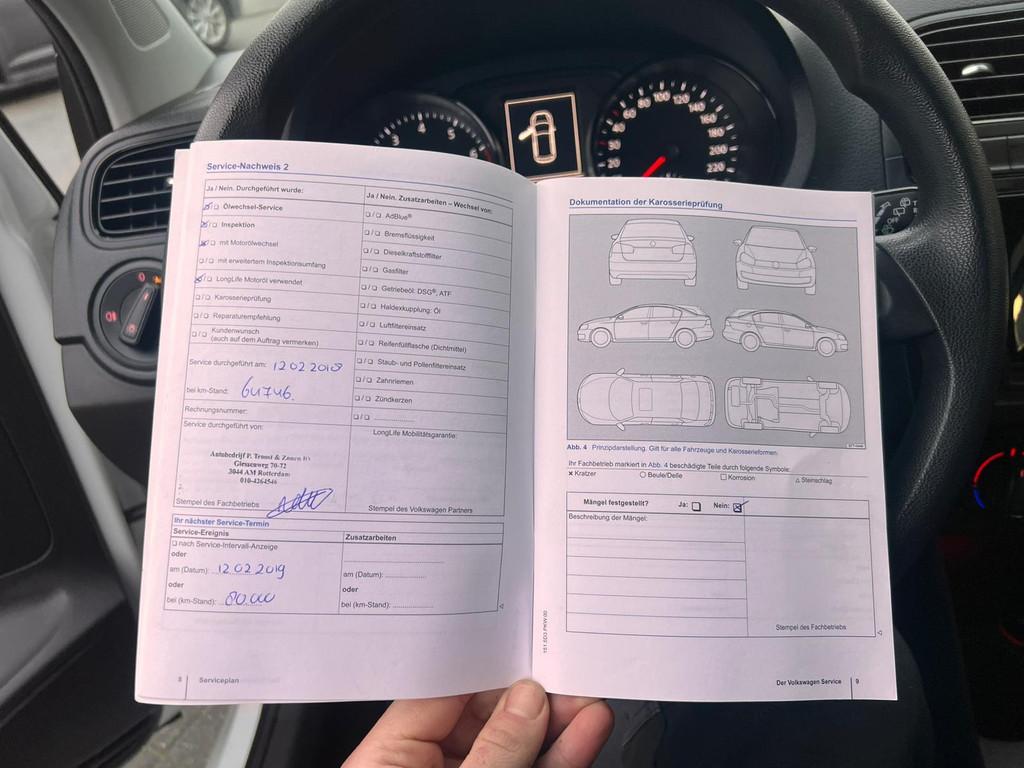 Service-Nachweis 2
Ja / Nein. Durchgeführt wurde:
Ölwechsel-Service
Inspektion
mit Motorölwechsel
mit erweitertem Inspektionsumfang
LongLife Motoröl verwendet
Karosserieprüfung
Reparaturempfehlung
Kundenwunsch
(auch auf dem Auftrag vermerken)
Service durchgeführt am: 12 02 2018
bei km-Stand: 64746.
Rechnungsnummer:
Service durchgeführt von:
Autobedrijf P. Troost & Zonen
Giessenweg 70-72
3044 AM Rotterdam
010-4264546
2.
Stempel des Fachbetriebs
Ja / Nein. Zusatzarbeiten – Wechsel von:
AdBlue®
Bremsflüssigkeit
Dieselkraftstofffilter
Gasfilter
Getriebeöl: DSG®, ATF
Haldexkupplung: Öl
Luftfiltereinsatz
Reifenfüllflasche (Dichtmittel)
Staub- und Pollenfiltereinsatz
Zahnriemen
Zündkerzen
LongLife Mobilitätsgarantie:
Stempel des Volkswagen Partners
Ihr nächster Service-Termin
Service-Ereignis
nach Service-Intervall-Anzeige
oder
am (Datum): 12 02 2019
oder
bei (km-Stand): 80.000
Zusatzarbeiten
am (Datum):
oder
bei (km-Stand):
8 Serviceplan
Dokumentation der Karosserieprüfung
Abb. 4 Prinzipdarstellung. Gilt für alle Fahrzeuge und Karosserieformen.
Ihr Fachbetrieb markiert in Abb. 4 beschädigte Teile durch folgende Symbole:
× Kratzer ○ Beule/Delle □ Korrosion △ Steinschlag
Mängel festgestellt? Ja: Nein:
Beschreibung der Mängel:
Stempel des Fachbetriebs
151.5D3.PKW.00
Der Volkswagen Service 9
3 4 5 6
20 40 60 80 100 120 140 160 180 200 220
OFF